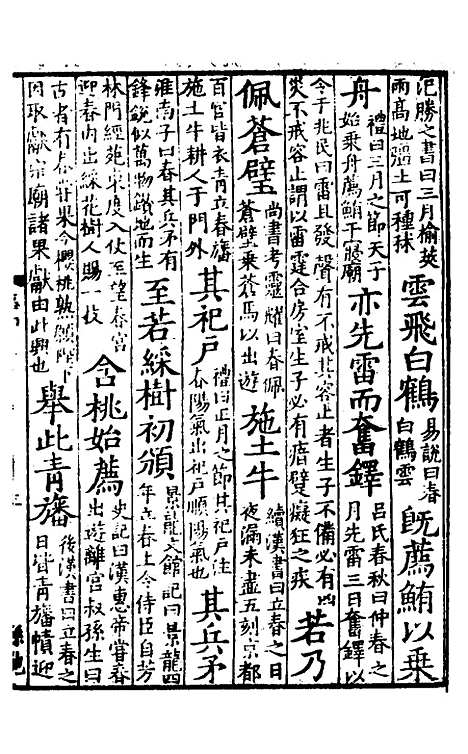 氾勝之書曰三月榆莢雨高地彊土可種秣雲飛白鶴易說曰春白鶴雲既薦鮪以乗
舟禮曰三月之節天子始乗舟薦鮪于寢廟亦先雷而奮鐸呂氏春秋曰仲春之月先雷三日奮鐸以
令于兆民曰雷且發聲有不戒其容止者生子不備必有
災不戒容止謂以雷霆合房室生子必有瘖躄癡狂之疾若乃
佩蒼璧尚書考靈耀曰春佩蒼璧乗蒼馬以出遊施土牛續漢書曰立春之日夜漏未盡五刻京都
百官皆衣青立春旛施土牛耕人于門外其祀戶禮曰正月之節其祀戶注春陽氣出祀戶順陽氣也其兵矛
淮南子曰春其兵矛有鋒銳似萬物鑚地而生至若綵樹初頒景龍文館記曰景龍四年立春上令侍臣自芳
林門經苑東度入仗至望春宮迎春内出綵花樹人賜一枝含桃始薦史記曰漢惠帝嘗春出遊離宮叔孫生曰
古者有春甞果今櫻桃熟願陛下因取獻宗廟諸果獻由此興也舉此青旛後漢書曰立春之日皆青旛幘迎